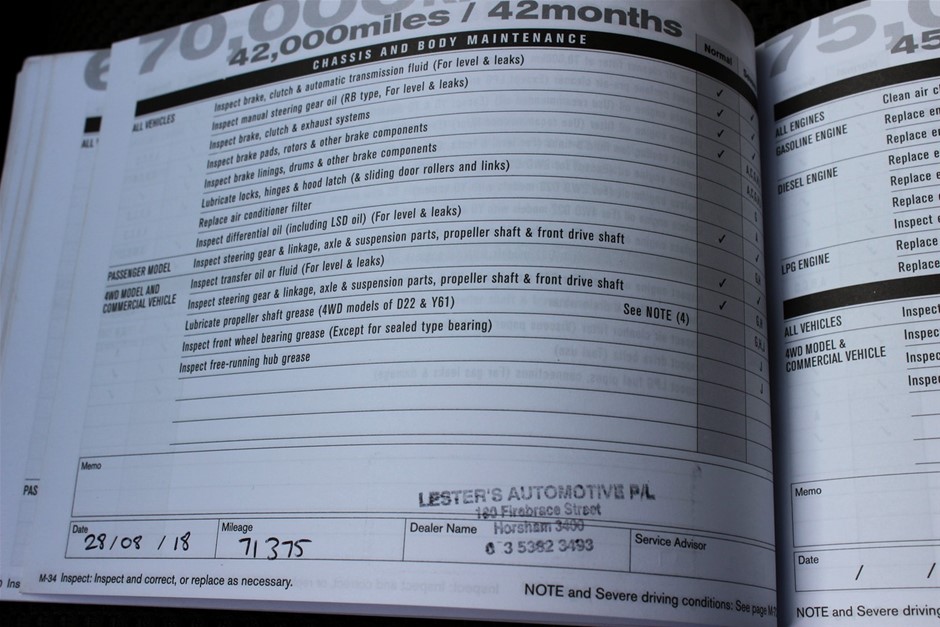 70,000
42,000miles / 42months
CHASSIS AND BODY MAINTENANCE
Normal
ALL VEHICLES
Inspect brake, clutch & automatic transmission fluid (For level & leaks)
Inspect manual steering gear oil (RB type, For level & leaks) ✓
Inspect brake, clutch & exhaust systems ✓
Inspect brake pads, rotors & other brake components ✓
Inspect brake linings, drums & other brake components ✓
Lubricate locks, hinges & hood latch (& sliding door rollers and links)
Replace air conditioner filter
Inspect differential oil (including LSD oil) (For level & leaks)
PASSENGER MODEL
Inspect steering gear & linkage, axle & suspension parts, propeller shaft & front drive shaft ✓
4WD MODEL AND
COMMERCIAL VEHICLE
Inspect transfer oil or fluid (For level & leaks)
Inspect steering gear & linkage, axle & suspension parts, propeller shaft & front drive shaft ✓
Lubricate propeller shaft grease (4WD models of D22 & Y61) See NOTE (4) ✓
Inspect front wheel bearing grease (Except for sealed type bearing)
Inspect free-running hub grease
Memo
LESTER'S AUTOMOTIVE P/L
180 Firebrace Street
Horsham 3400
0 3 5382 3493
Date
28/08 / 18
Mileage
71375
Dealer Name
Service Advisor
M-34 Inspect: Inspect and correct, or replace as necessary.
NOTE and Severe driving conditions: See page
PAS
Ins
75,
45
ALL ENGINES
Clean air
GASOLINE ENGINE
Replace
Replace
DIESEL ENGINE
Replace
Replace
Replace
Inspect
LPG ENGINE
Replace
Replace
ALL VEHICLES
Inspect
4WD MODEL &
COMMERCIAL VEHICLE
Memo
Date
/ /
NOTE and Severe driving